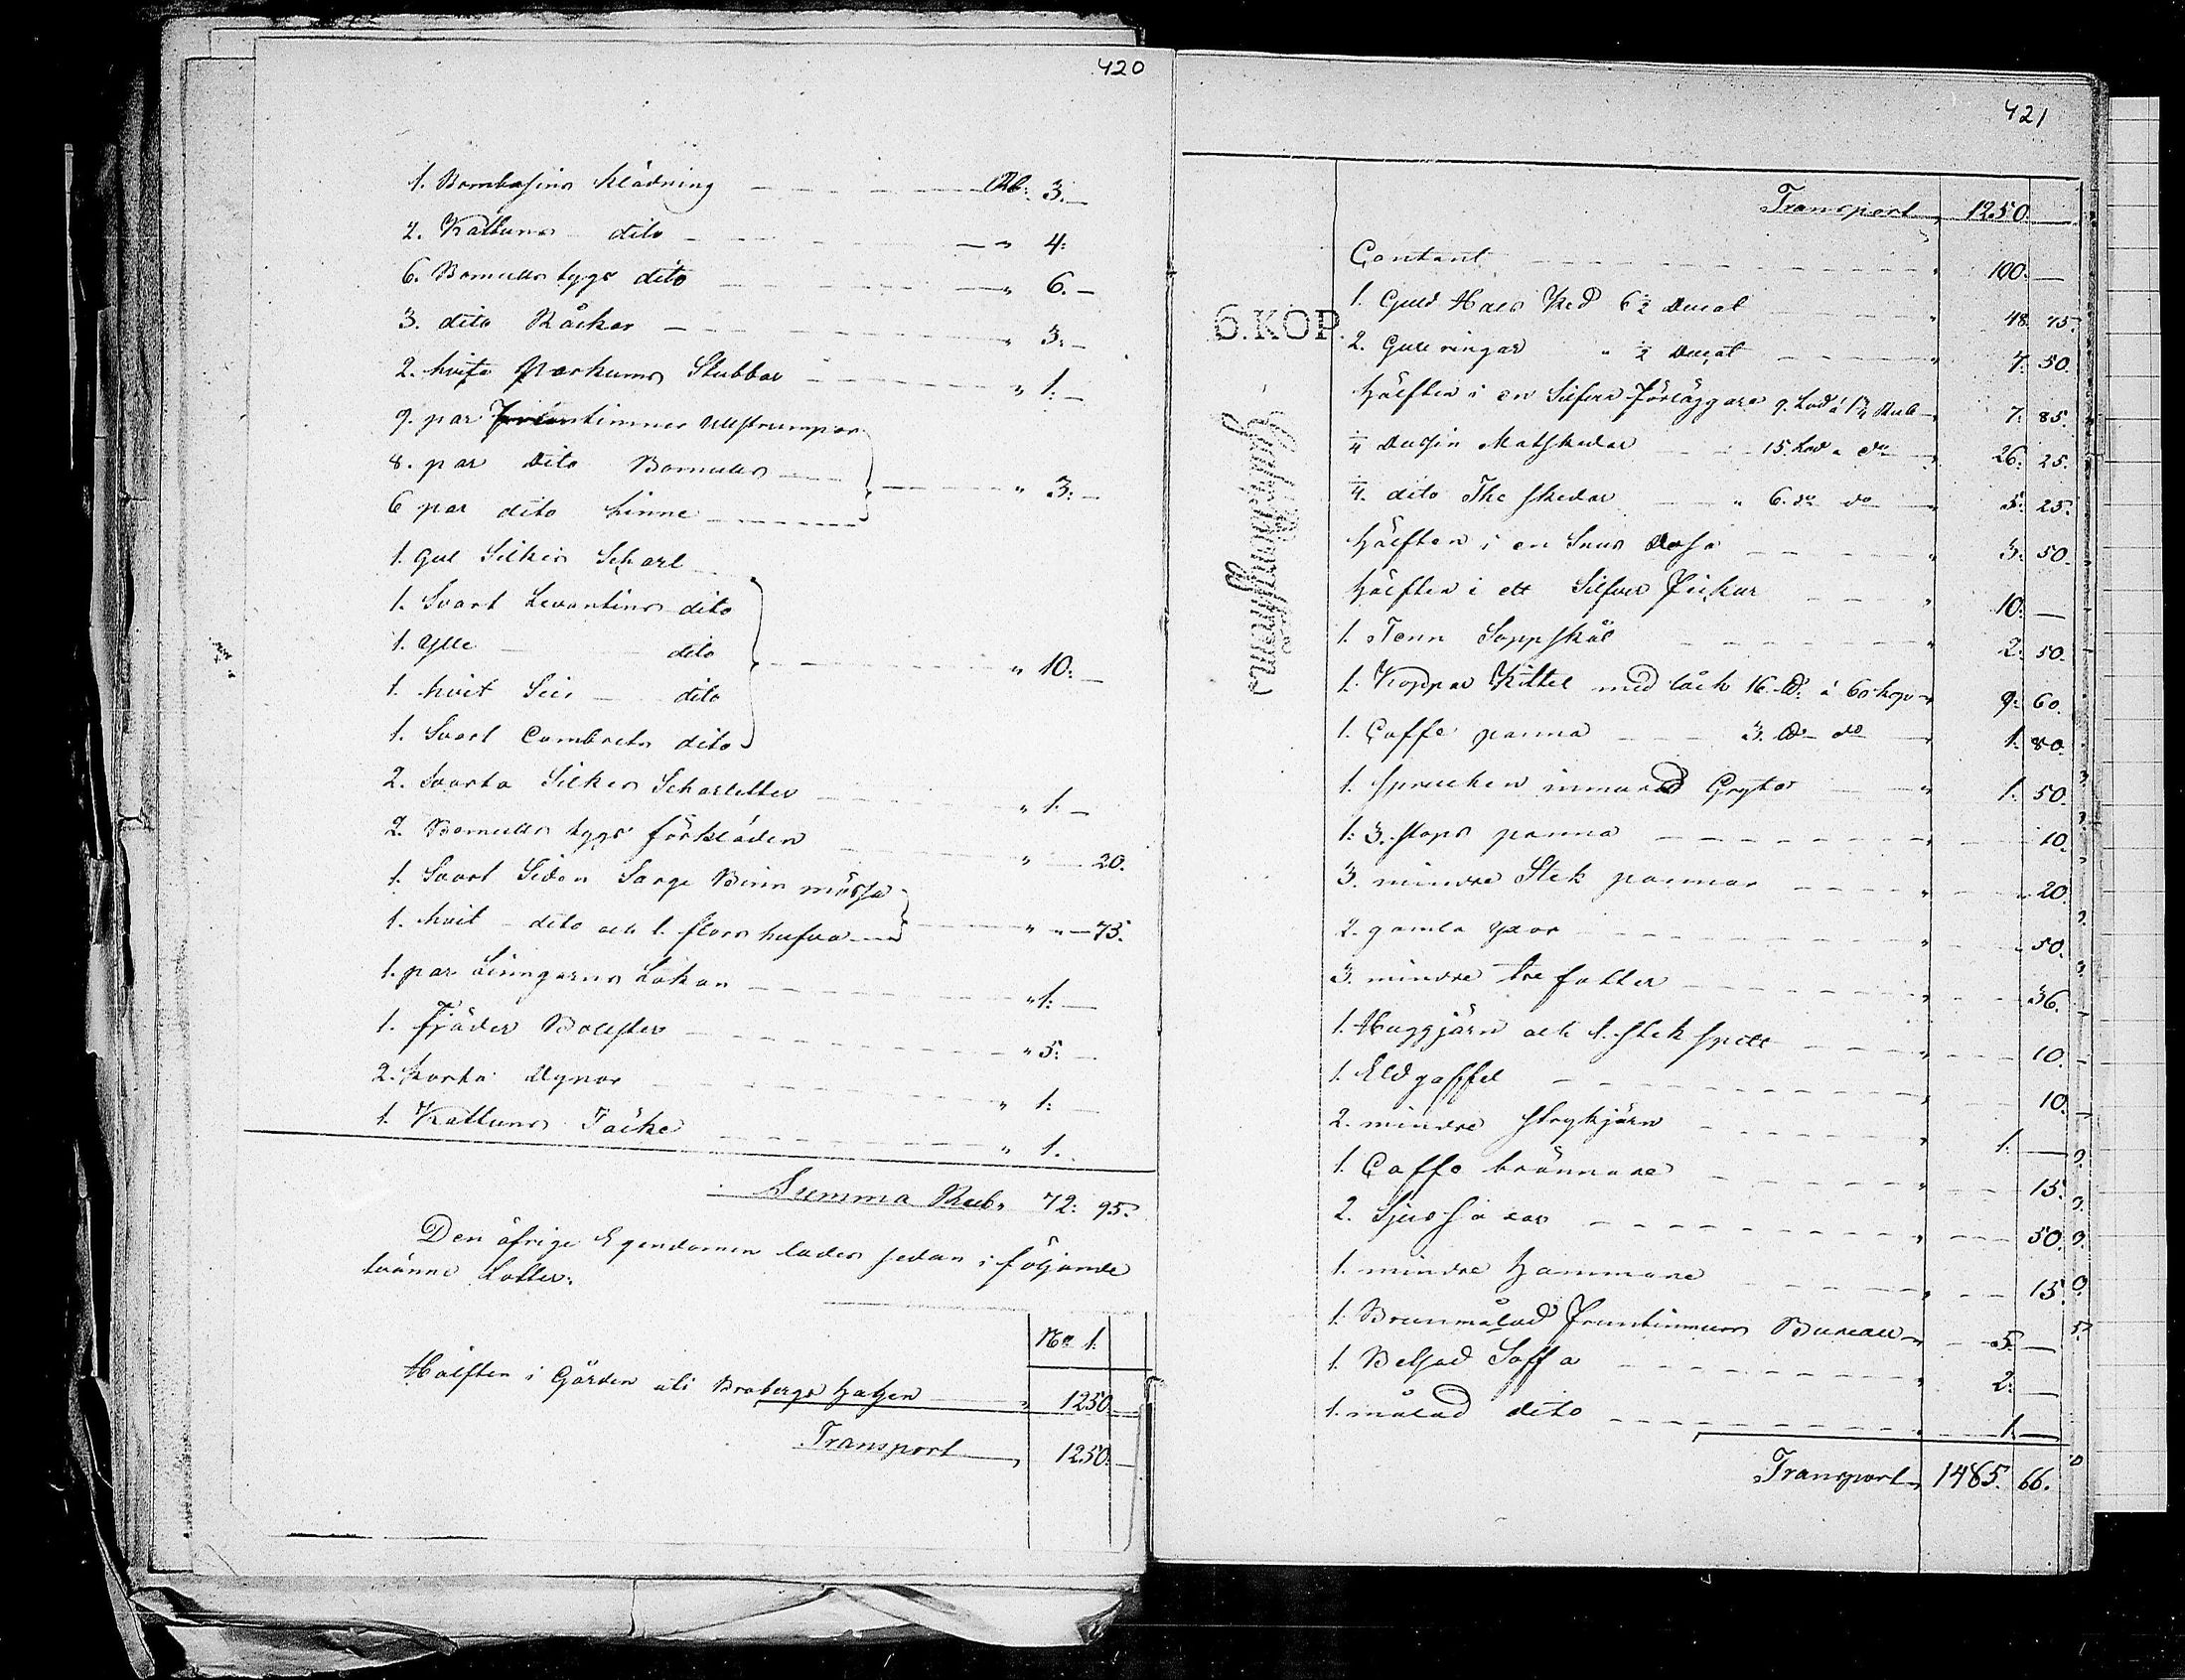 420
1. Bombasins Klädning Rub: 3.—
2. Kattuns dito " 4:
6. Bomulls tygs dito " 6.—
3. dito Räckor " 3:—
2. hvita Parkums Stubbar " 1:—
9. par Fruntimmer ullstrumpor
8. par dito Bomulls
6 par dito Linne " 3:—
1. Gul Silkes Scharl
1. Svart Levantins dito
1. Ylle dito " 10:—
1. hvit dito
1. Svart Cambrets dito
2. Svarta Silkes Scharletter " 1.—
2. Bomulls tygs förkläden " —20.
1. Svart Siden Sarge Binn mössa
1. hvit dito och 1. flors hufva " "—75.
1. par Linngarns Lakan " 1:—
1. fjäder Bolster " 5:—
2. korta Dynor " 1:—
1. Kattuns Täcke " 1.
Summa Rub. 72: 95.
Den öfrige Egendomen lades sedan i följande
tvänne Lotter:
No 1.
Hälften i Gården uti Brobergs hagen " 1250.—
Transport, 1250.—
421
6. KOP.
Transport, 1250.—
Contant 100.—
1. Guld Hals Ked 6 1/2 Ducat 48. 75.
2. Gull ringar " 1/2 Ducat 7. 50.
Hälften i en Silfver förläggare 9. Lod à 1 3/4 Rub 7. 85.
1/4 dussin Matskedar 15. Lod a do 26. 25.
1/4. dito The skedar " 6. do do 5. 25.
Hälften i en Snus dosa 3. 50.
Hälften i ett Silfver fickur 10.—
1. Tenn Soppskål 2. 50.
1. Koppar Kittel med låck 16. ℔: à 60 kop 9. 60.
1. Caffe panna 3. ℔ do 1. 80.
1. sprucken inmurad Gryta 1. 50.
1. 3. stops panna 10.
3. mindre Stek pannor 20.
2. gamla yxor 50.
3. mindre tre fotter 36.
1. Huggjärn och 1. stek spett 10.
1. Eldgaffel 10.
2. mindre strykjärn 1.—
1. Caffe brännare 15.
2. Ljus saxar 50.
1. mindre hammare 15.
1. Brunmålad Fruntimmers Bureau 5.—
1. Betsad Soffa 2.—
1. målad dito 1.—
Transport, 1485. 66.